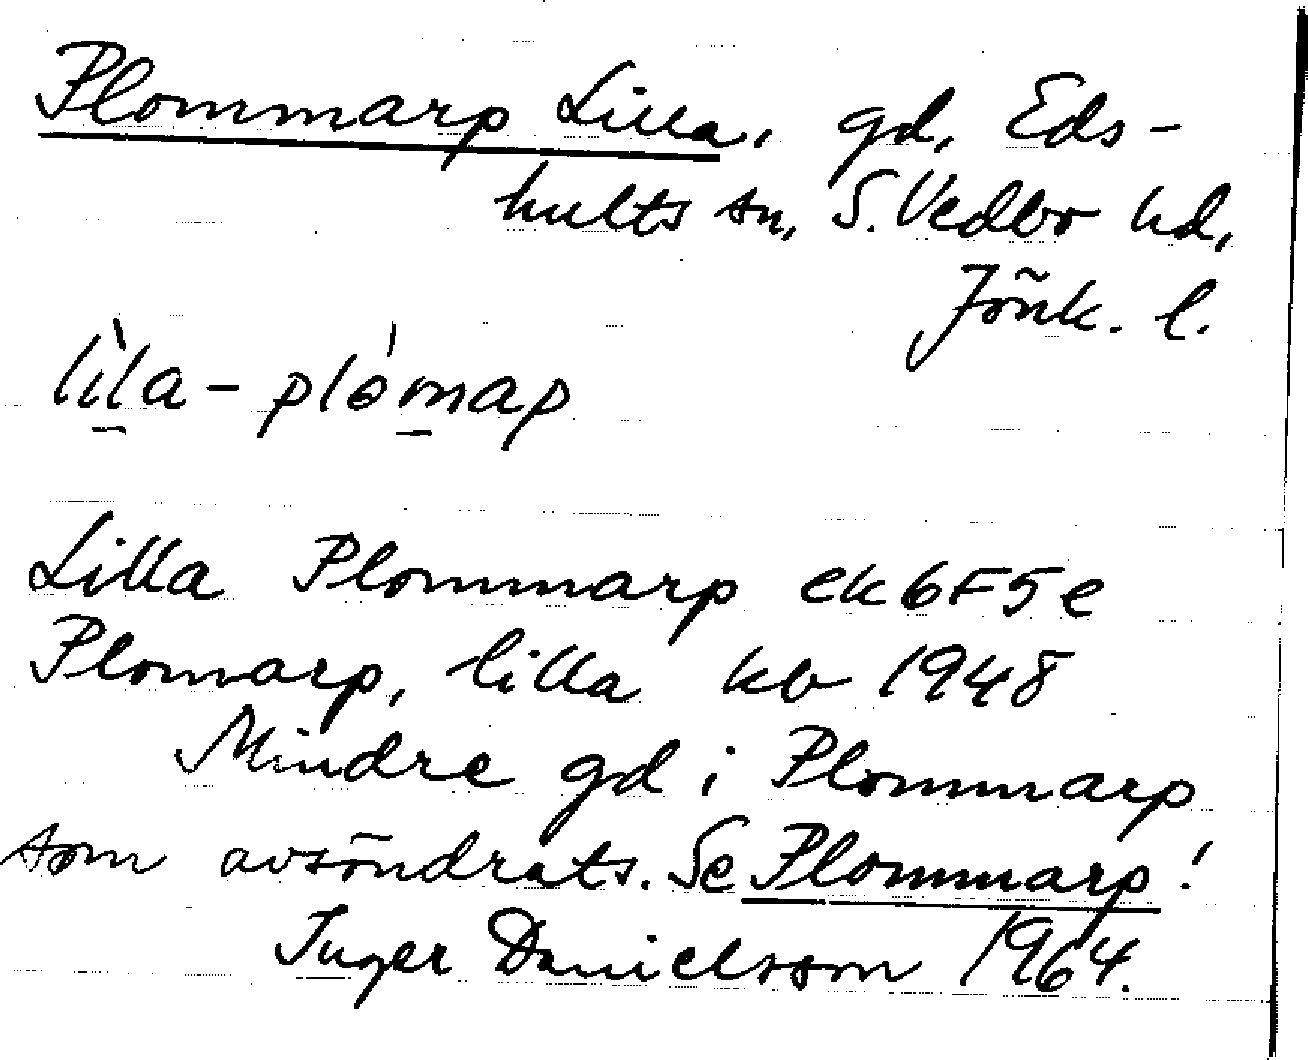 Plommarp Lilla, gd, Eds-
hults sn, S. Vedbo hd,
Jönk. l.
lìl̠a-plóm̠ap
Lilla Plommarp ek 6F5e
Plomarp, lilla kb 1948
Mindre gd i Plommarp
som avsöndrats. Se Plommarp!
Inger Danielsson 1964.